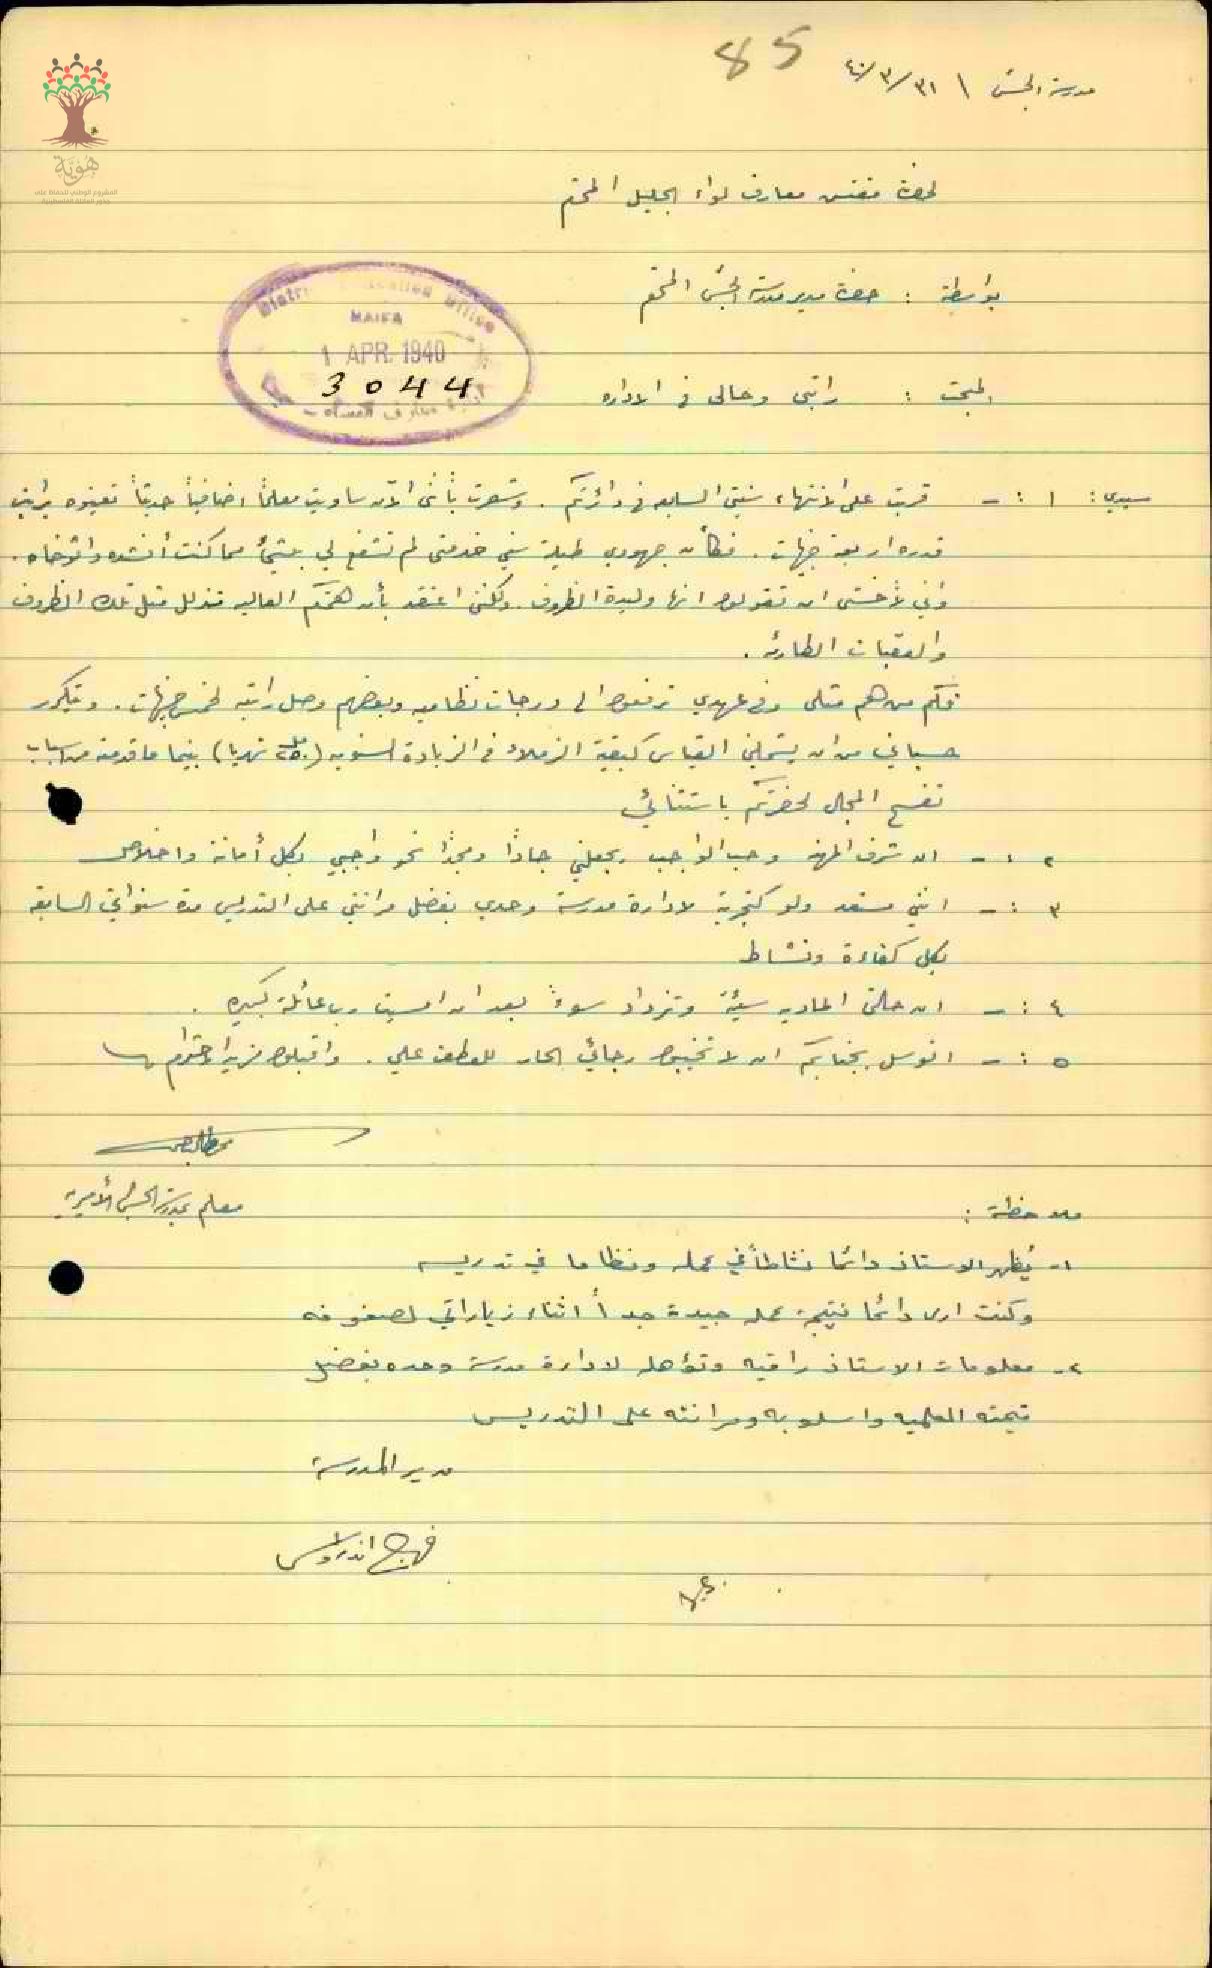 85
مدرسة الجش \ ٣١/٣/٤٠
هُويَّة
المشروع الوطني للحفاظ على
جذور العائلة الفلسطينية
لحضرة مفتش معارف لواء الجليل المحترم
بواسطة : حضرة مدير مدرسة الجش المحترم
District Education Office
HAIFA
1 APR. 1940
3044
المبحث : راتبي وحالي في الادارة
سيدي : ١ :- قربت على الانتهاء سنتي السابعه في دائرتكم . وشعرت بأنني الآن ساويت معلماً اضافياً حديثاً تعينوه براتب
قدره اربعة جنيهات . فكأن جهودي طيلة سني خدمتي لم تشفع لي بشيء مما كنت أنشده واتوخاه .
واني لأخشى ان تقولوا انها وليدة الظروف . ولكنني اعتقد بأن همتكم العاليه تذلل مثل تلك الظروف
والعقبات الطارئه .
فكم من هم مثلي وفي عهدي ترفعوا الى درجات نظاميه وبعضهم وصل راتبه لخمس جنيهات . ويتكرر
حسباني من ان يشملني القياس كبقية الزملاء في الزيادة السنويه ( شهريا ) بينما ما قدمته من اسباب
تفسح المجال لحضرتكم باستثنائي
٢ :- ان شرف المهنه وحب الواجب يجعلني جاداً ومجداً نحو واجبي بكل أمانة واخلاص
٣ :- انني مستعد ولو كتجربة لادارة مدرسة وحدي بفضل مرانتي على التدريس مدة سنواتي السابقه
بكل كفاءة ونشاط
٤ :- ان حالتي الماديه سيئة وتزداد سوءً بعد ان امسيت رب عائلة كبيره .
٥ :- اتوسل بجنابكم ان لا تخيبوا رجائي الحار للعطف علي . واقبلوا مزيد الاحترام
معلم بمدرسة الجش الأميريه
ملاحظة :
١- يُظهر الاستاذ دائما نشاطاً في عمله ونظاما في تدريسه
وكنت ارى دائما نتيجة عمله جيدة جداً اثناء زياراتي لصفوفه
٢- معلومات الاستاذ راقيه وتؤهله لادارة مدرسة وحده بفضل
قيمته العلميه واسلوبه ومرانته على التدريس
مدير المدرسة
فرح اندراوس